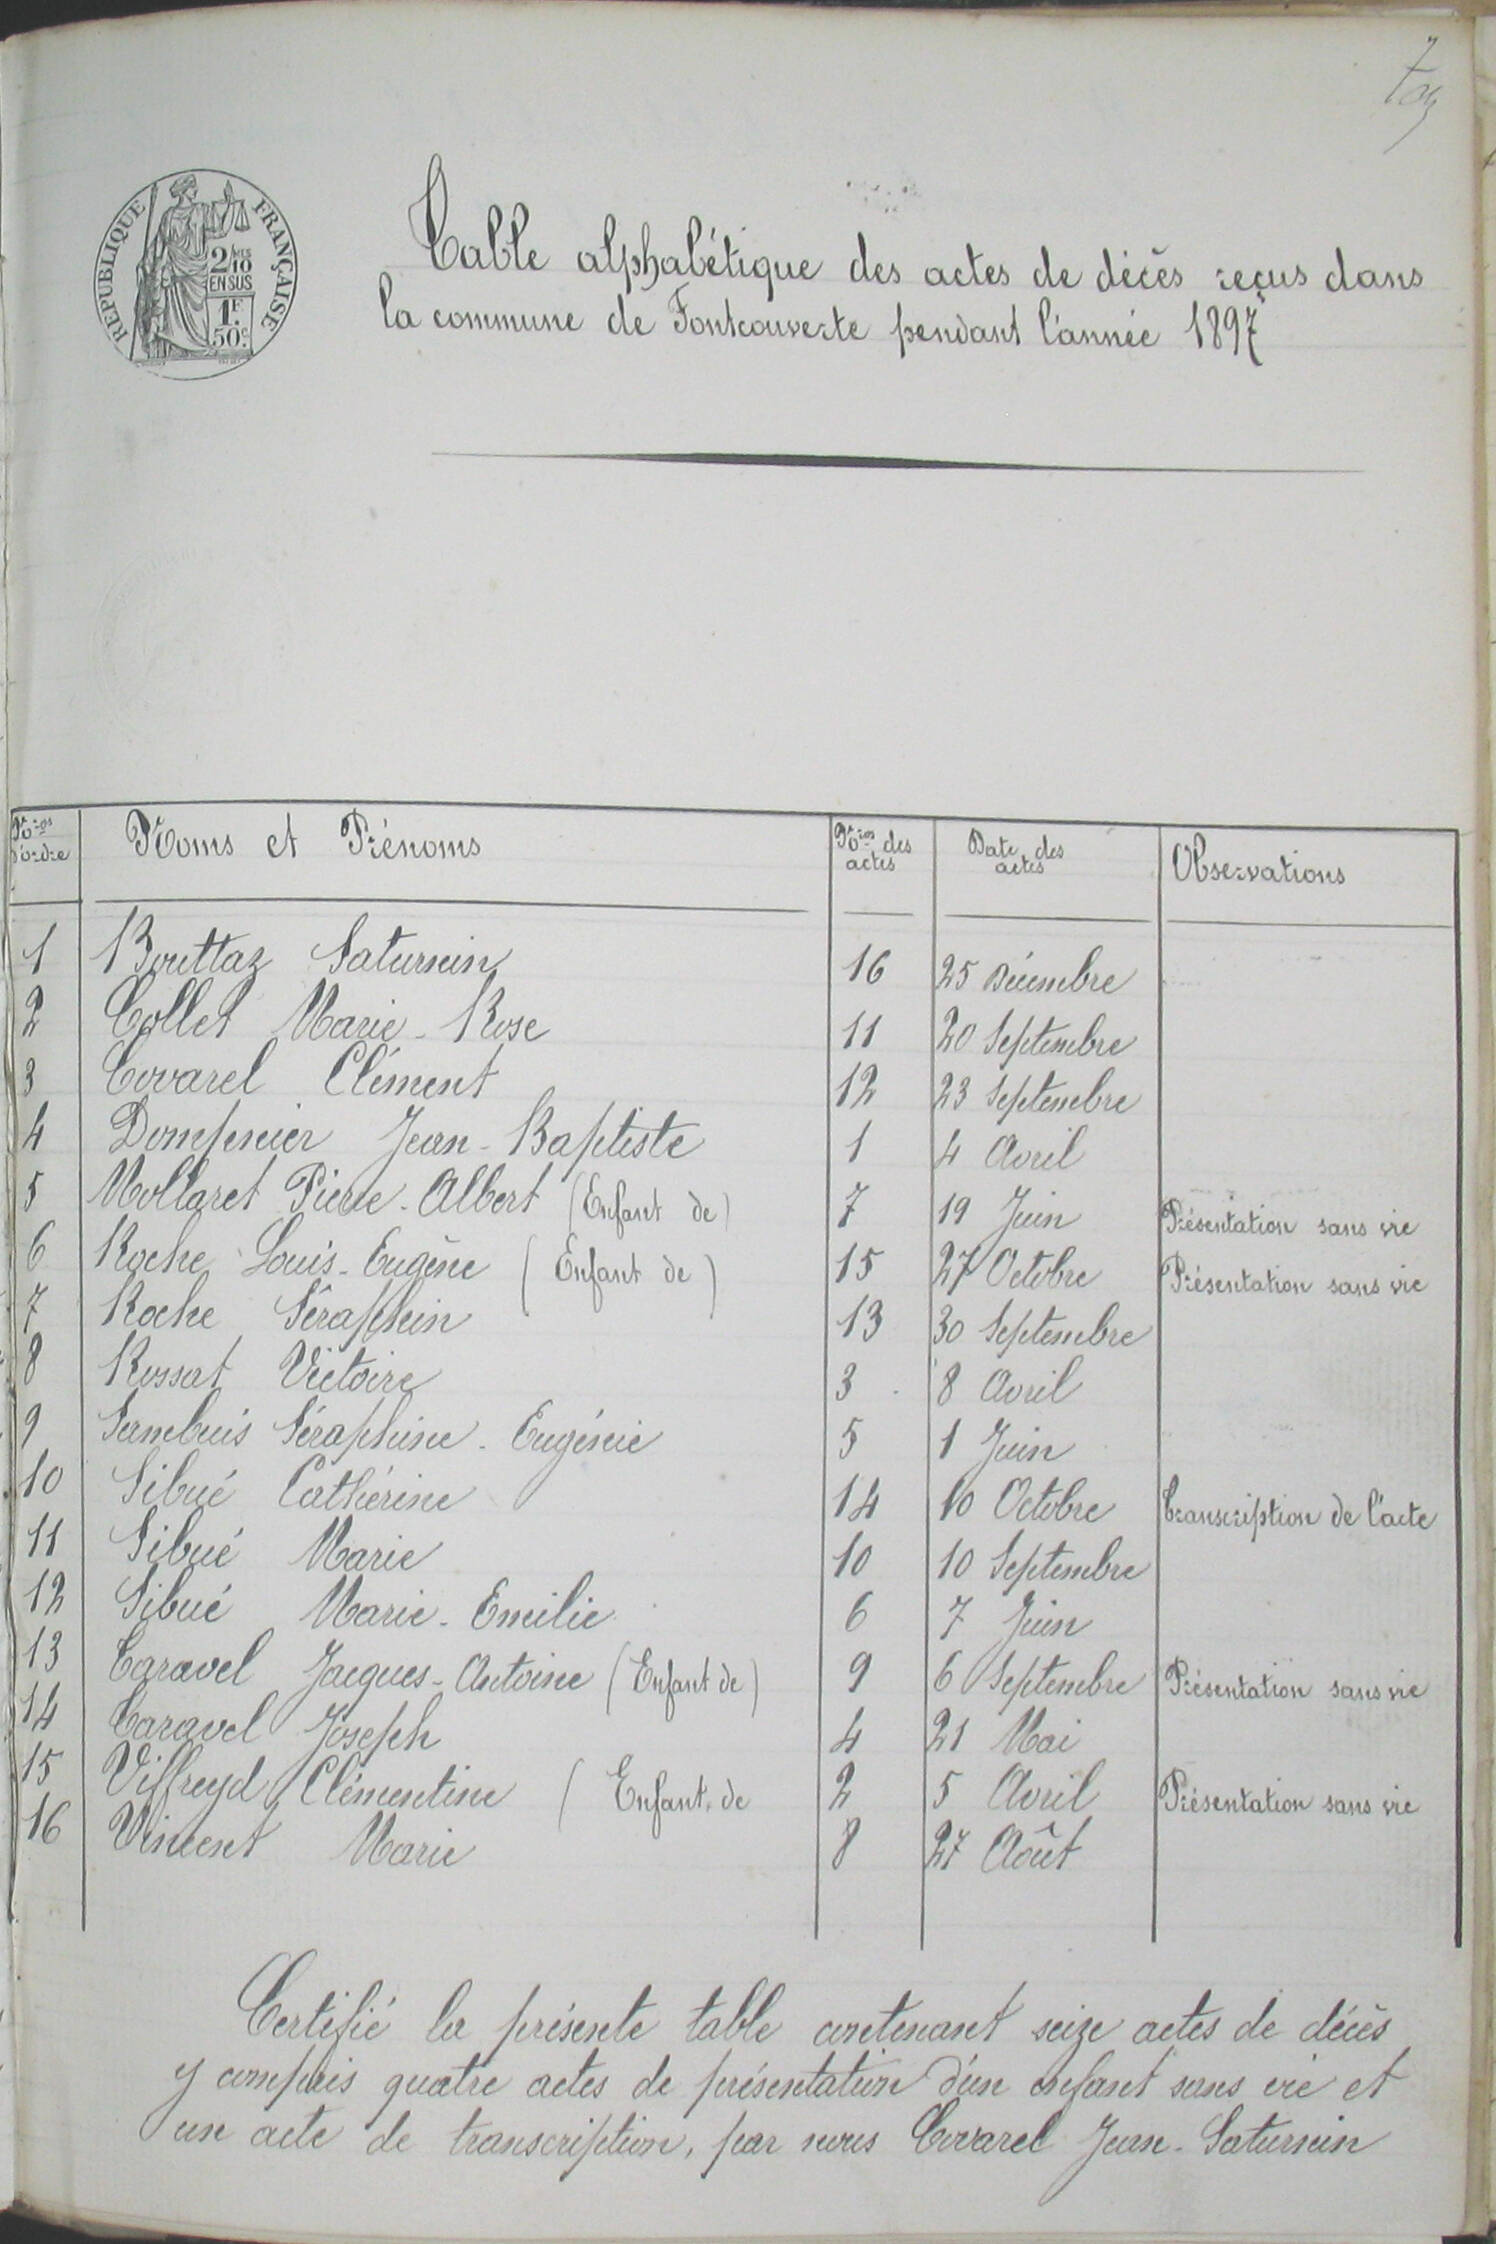 7
REPUBLIQUE FRANÇAISE
2/10 EN SUS
1F 50c
Table alphabétique des actes de décès reçus dans
la commune de Fontcouverte pendant l'année 1897
Nros d'ordre Noms et Prénoms Nros des actes Date des actes Observations
1 Bouttaz Saturnin 16 25 Décembre
2 Collet Marie-Rose 11 20 Septembre
3 Covarel Clément 12 23 Septembre
4 Dompnier Jean-Baptiste 1 4 Avril
5 Mollaret Pierre-Albert (Enfant de) 7 19 Juin Présentation sans vie
6 Roche Louis-Eugène (Enfant de) 15 27 Octobre Présentation sans vie
7 Roche Séraphin 13 30 Septembre
8 Rossat Victoire 3 8 Avril
9 Sambuis Séraphine-Eugénie 5 1 Juin
10 Sibué Cathérine 14 10 Octobre Transcription de l'acte
11 Sibué Marie 10 10 Septembre
12 Sibué Marie-Emilie 6 7 Juin
13 Taravel Jacques-Antoine (Enfant de) 9 6 Septembre Présentation sans vie
14 Taravel Joseph 4 21 Mai
15 Viffreyd Clémentine (Enfant de 2 5 Avril Présentation sans vie
16 Vincent Marie 8 27 Août
Certifié la présente table contenant seize actes de décès
y compris quatre actes de présentation d'un enfant sans vie et
un acte de transcription, par nous Covarel Jean-Saturnin